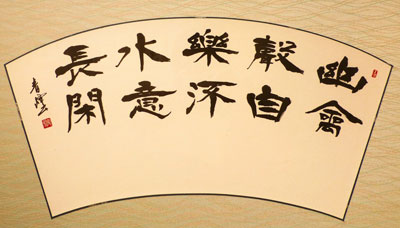 幽禽
聲自
樂流
水意
長閑